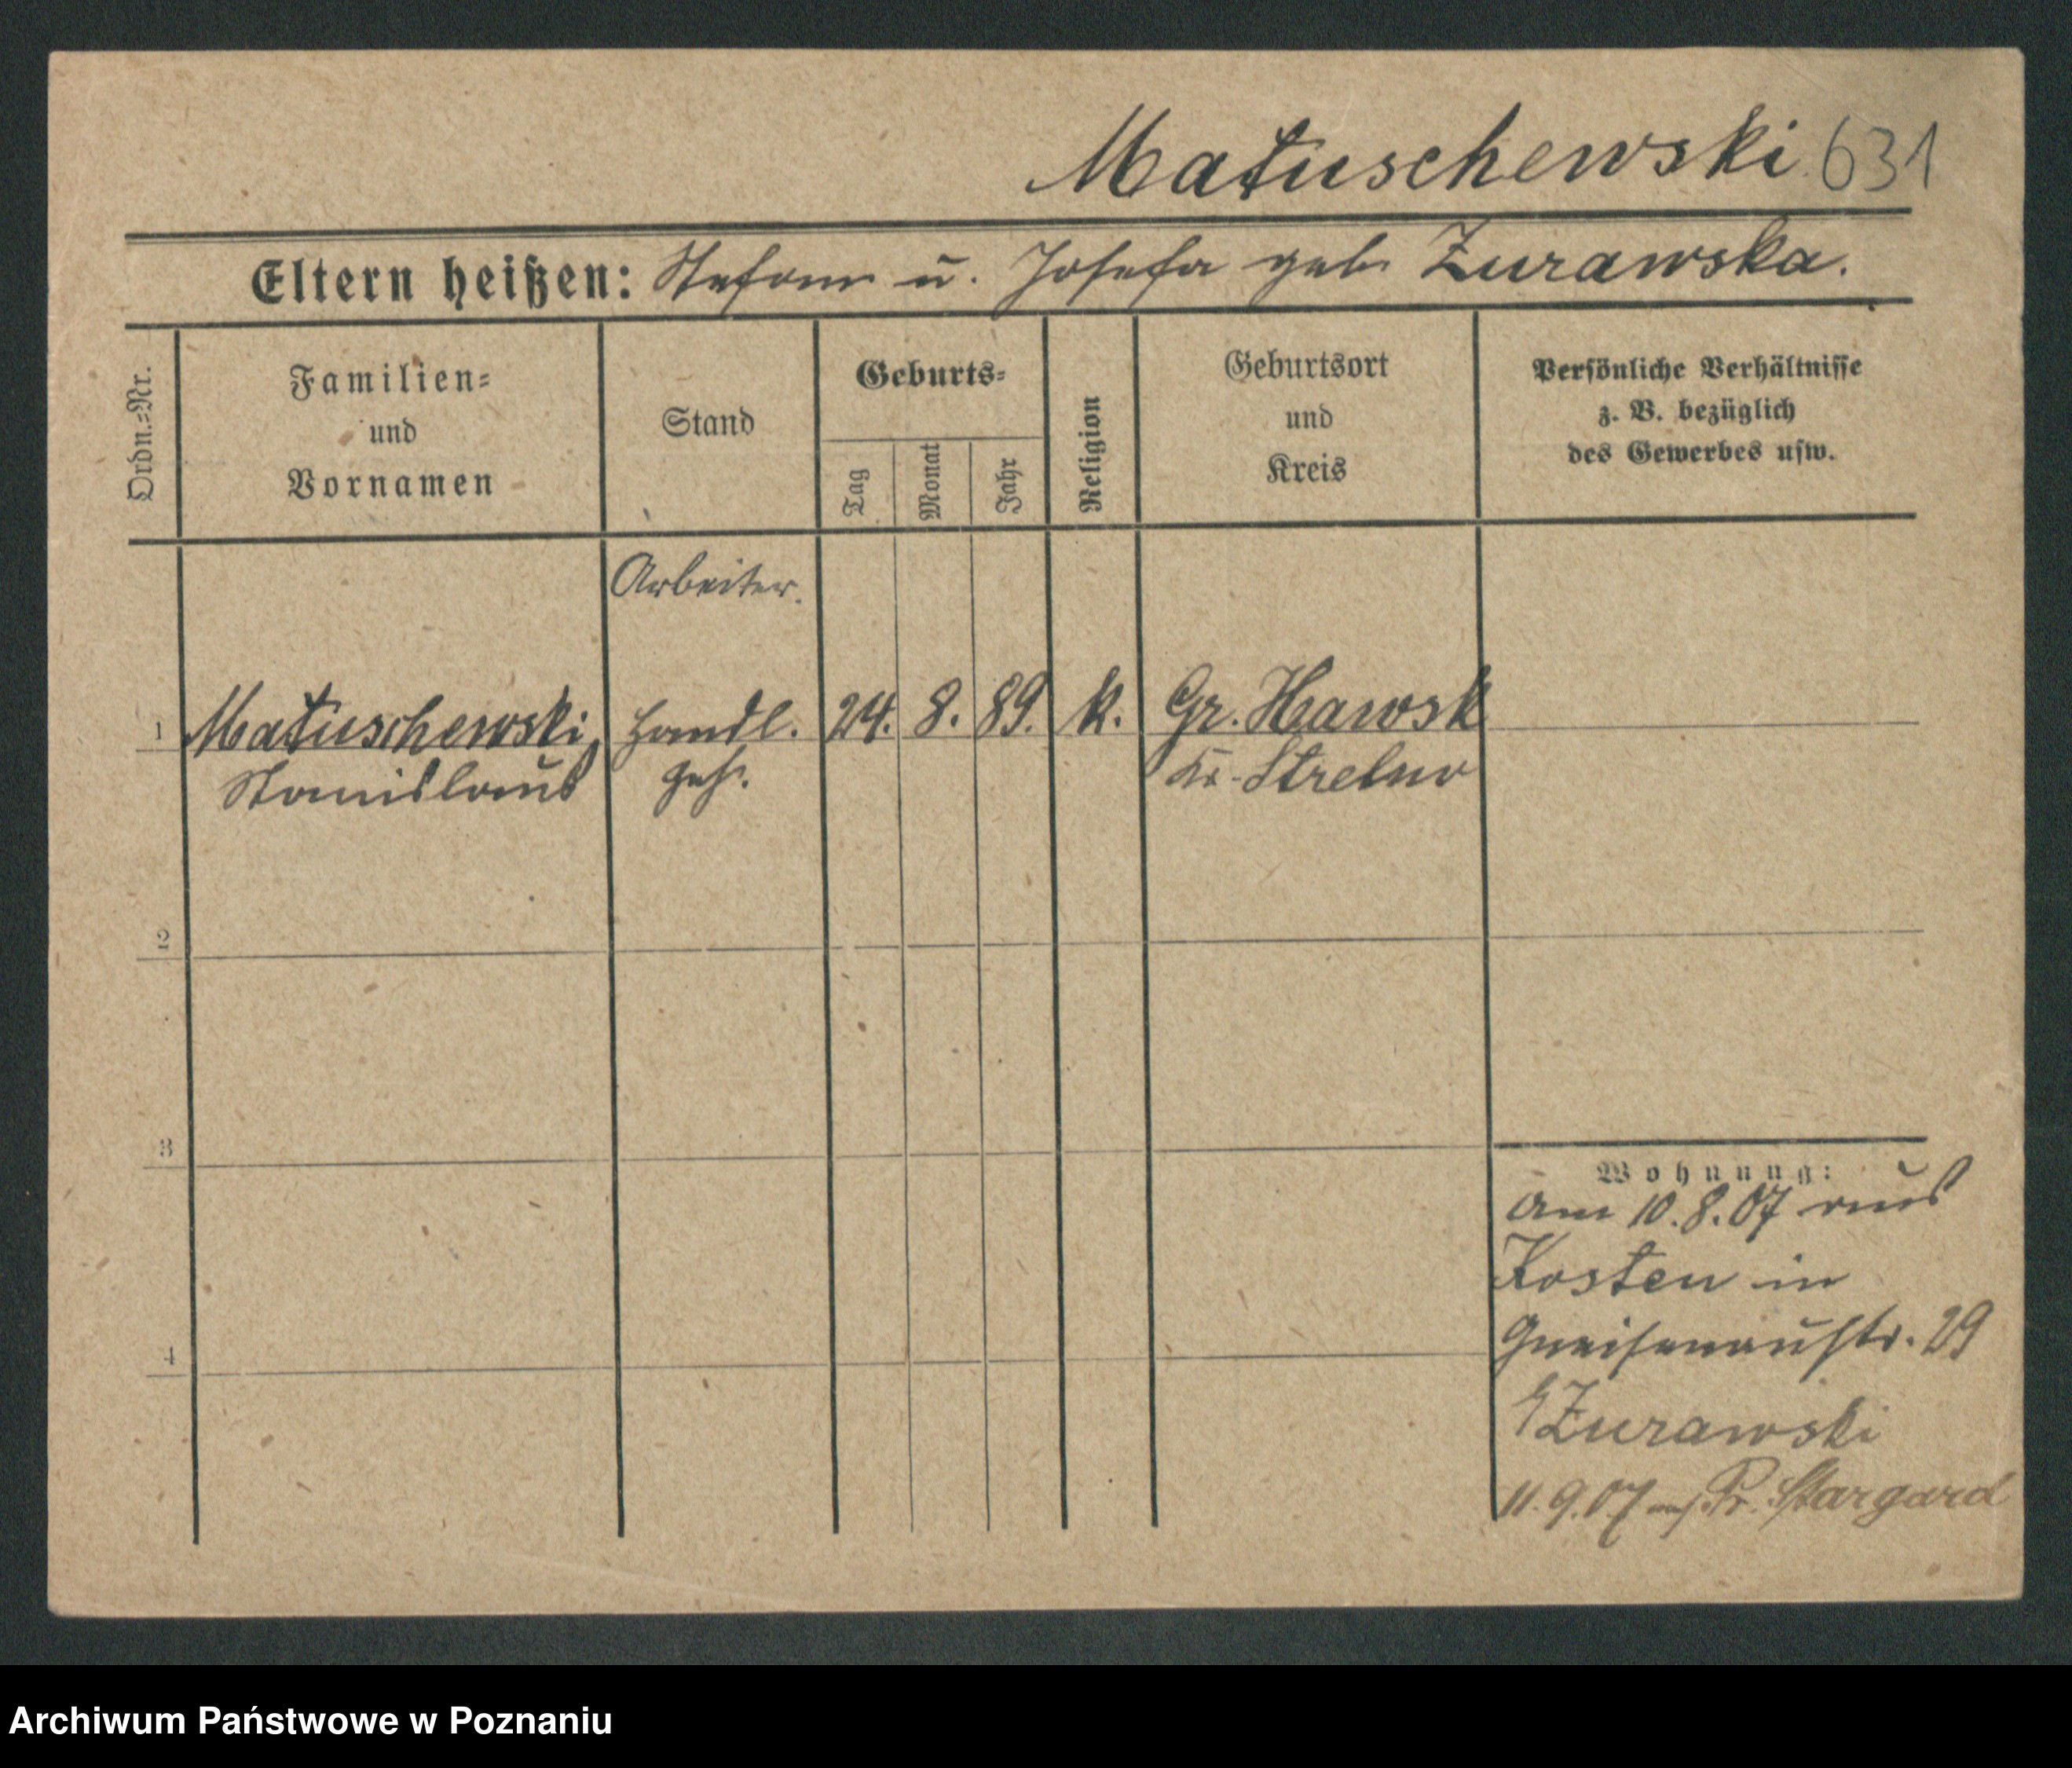 Matuschewski 631
Eltern heißen: Stefan u. Josefa geb. Zurawska.
Ordn.=Nr.
Familien=
und
Vornamen
Stand
Geburts=
Tag
Monat
Jahr
Religion
Geburtsort
und
Kreis
Persönliche Verhältnisse
z. B. bezüglich
des Gewerbes usw.
Arbeiter.
1 Matuschewski, Handl. 24. 8. 89. k. Gr. Hawsk
Stanislaus geh. Kr. Strelno
2
3
4
Wohnung:
Am 10.8.07 aus
Kosten in
Gneisenaustr. 29
Zurawski
11.9.07 Pr. Stargard
Archiwum Państwowe w Poznaniu